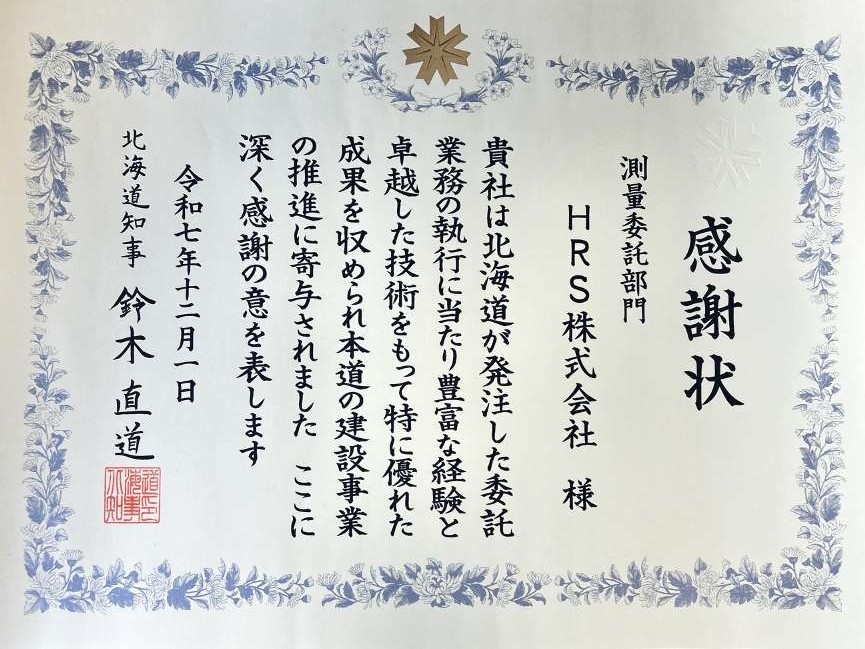 感謝状
測量委託部門
HRS株式会社 様
貴社は北海道が発注した委託
業務の執行に当たり豊富な経験と
卓越した技術をもって特に優れた
成果を収められ本道の建設事業
の推進に寄与されました ここに
深く感謝の意を表します
令和七年十二月一日
北海道知事 鈴木直道